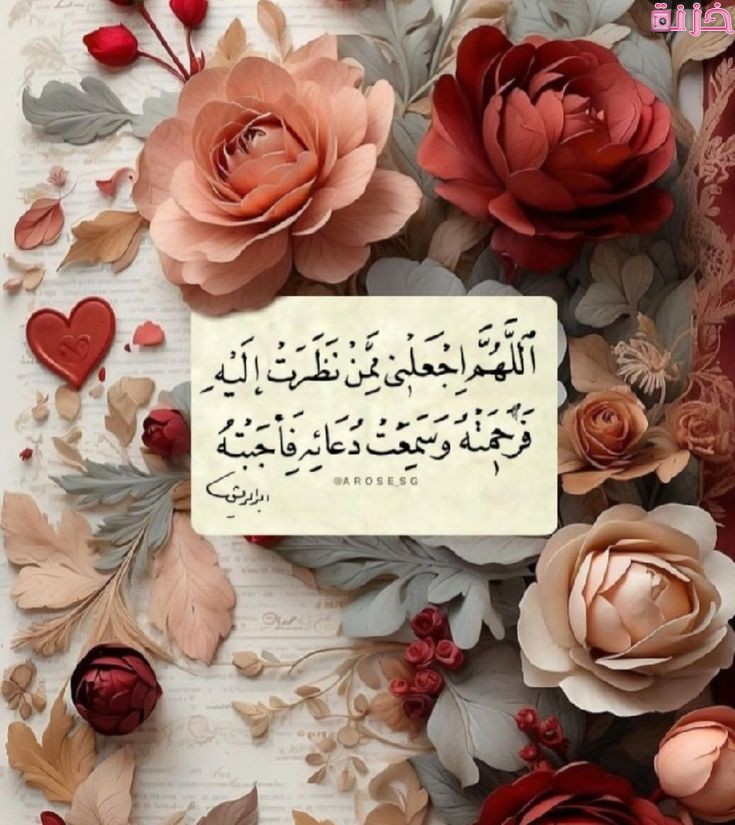 خزنة
ٱللَّهُمَّ اِجْعَلْنِي مِمَّنْ نَظَرَتْ إِلَيْهِ
فَرَحِمَتْهُ وَسَمِعَتْ دُعَائِهِ فَأَجَبْتَهُ
@AROSE_SG